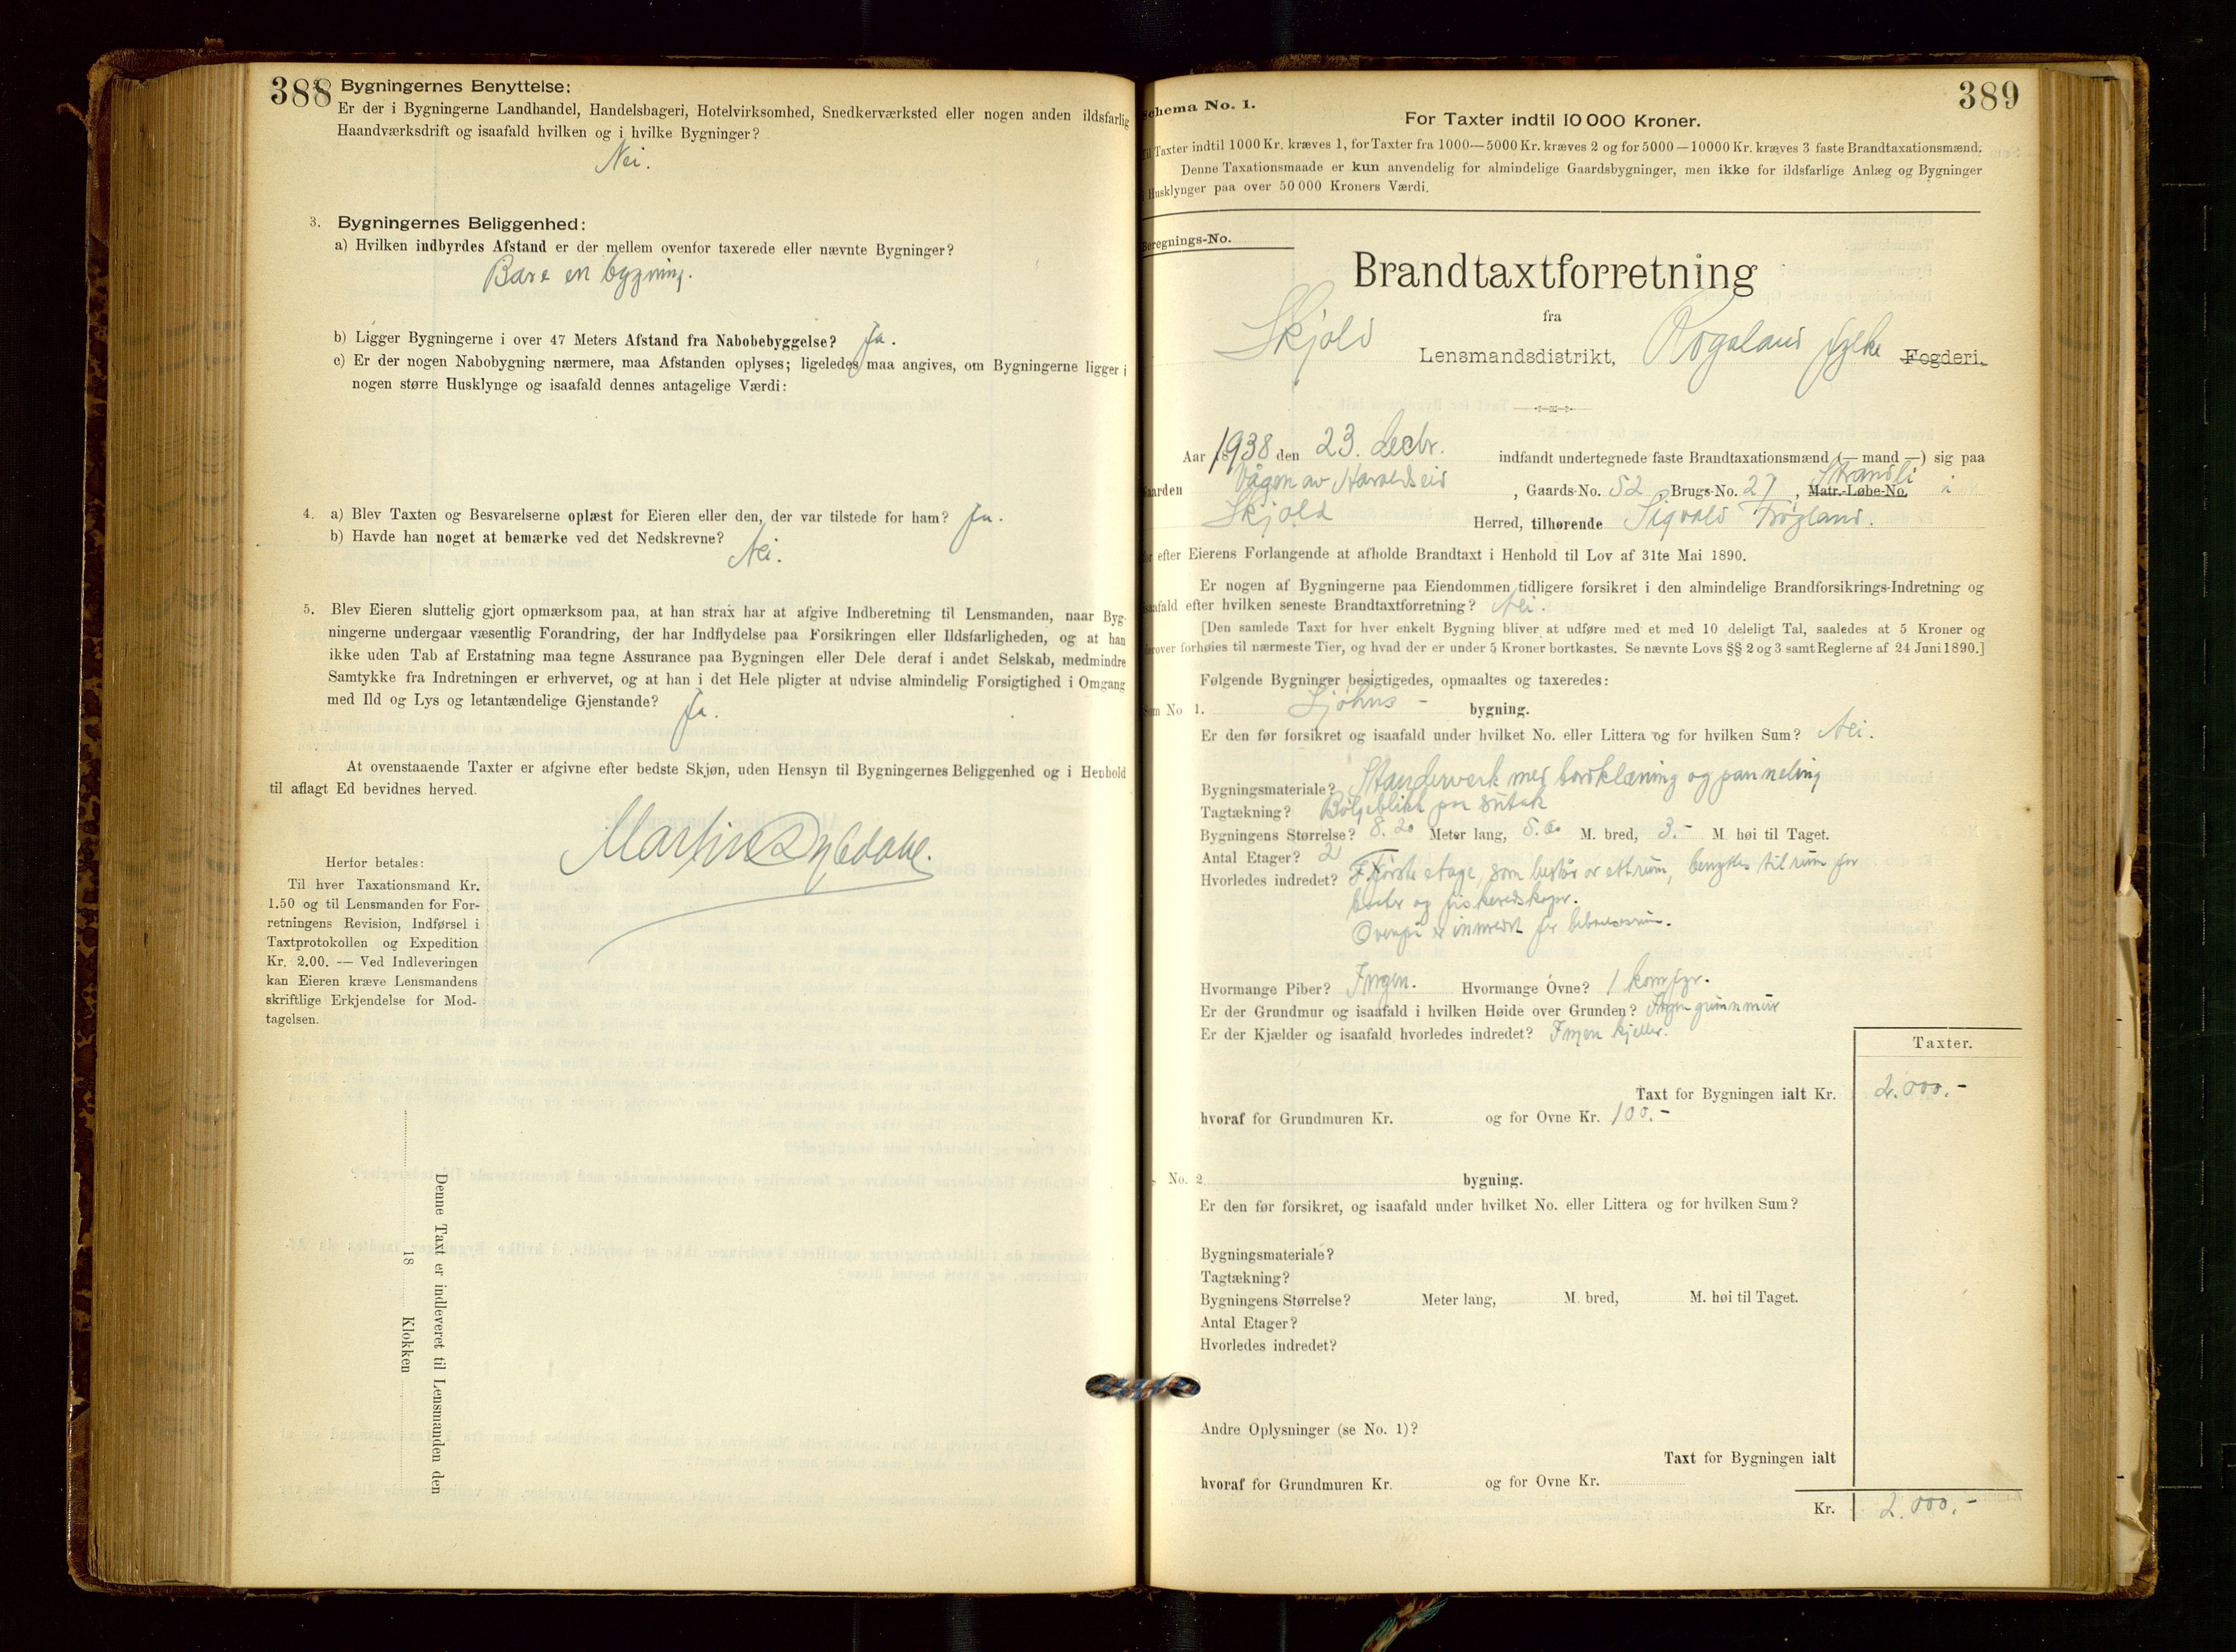 388
Bygningernes Benyttelse:
Er der i Bygningerne Landhandel, Handelsbageri, Hotelvirksomhed, Snedkerværksted eller nogen anden ildsfarlig
Haandværksdrift og isaafald hvilken og i hvilke Bygninger?
Nei.
3. Bygningernes Beliggenhed:
a) Hvilken indbyrdes Afstand er der mellem ovenfor taxerede eller nævnte Bygninger?
Bare en bygning.
b) Ligger Bygningerne i over 47 Meters Afstand fra Nabobebyggelse? Ja.
c) Er der nogen Nabobygning nærmere, maa Afstanden oplyses; ligeledes maa angives, om Bygningerne ligger i
nogen større Husklynge og isaafald dennes antagelige Værdi:
4. a) Blev Taxten og Besvarelserne oplæst for Eieren eller den, der var tilstede for ham? Ja.
b) Havde han noget at bemærke ved det Nedskrevne? Nei.
5. Blev Eieren sluttelig gjort opmærksom paa, at han strax har at afgive Indberetning til Lensmanden, naar Byg-
ningerne undergaar væsentlig Forandring, der har Indflydelse paa Forsikringen eller Ildsfarligheden, og at han
ikke uden Tab af Erstatning maa tegne Assurance paa Bygningen eller Dele deraf i andet Selskab, medmindre
Samtykke fra Indretningen er erhvervet, og at han i det Hele pligter at udvise almindelig Forsigtighed i Omgang
med Ild og Lys og letantændelige Gjenstande? Ja.
At ovenstaaende Taxter er afgivne efter bedste Skjøn, uden Hensyn til Bygningernes Beliggenhed og i Henhold
til aflagt Ed bevidnes herved.
Martin
Herfor betales:
Til hver Taxationsmand Kr.
1.50 og til Lensmanden for For-
retningens Revision, Indførsel i
Taxtprotokollen og Expedition
Kr. 2.00. — Ved Indleveringen
kan Eieren kræve Lensmandens
skriftlige Erkjendelse for Mod-
tagelsen.
Denne Taxt er indleveret til Lensmanden den
18 Klokken
389
Schema No. 1.
For Taxter indtil 10 000 Kroner.
Til Taxter indtil 1000 Kr. kræves 1, for Taxter fra 1000—5000 Kr. kræves 2 og for 5000—10000 Kr. kræves 3 faste Brandtaxationsmænd.
Denne Taxationsmaade er kun anvendelig for almindelige Gaardsbygninger, men ikke for ildsfarlige Anlæg og Bygninger
i Husklynger paa over 50 000 Kroners Værdi.
Beregnings-No.
Brandtaxtforretning
fra
Skjold Lensmandsdistrikt, Rogaland fylke Fogderi.
Aar 1938 den 23. decbr. indfandt undertegnede faste Brandtaxationsmænd (— mand —) sig paa
Gaarden Vågen av Haraldseid, Gaards-No. 52, Brugs-No. 27, Matr.-Løbe-No. Strandli i
Skjold Herred, tilhørende Sigvald Frøgland.
for efter Eierens Forlangende at afholde Brandtaxt i Henhold til Lov af 31te Mai 1890.
Er nogen af Bygningerne paa Eiendommen tidligere forsikret i den almindelige Brandforsikrings-Indretning og
isaafald efter hvilken seneste Brandtaxtforretning? Nei.
[Den samlede Taxt for hver enkelt Bygning bliver at udføre med et med 10 deleligt Tal, saaledes at 5 Kroner og
derover forhøies til nærmeste Tier, og hvad der er under 5 Kroner bortkastes. Se nævnte Lovs §§ 2 og 3 samt Reglerne af 24 Juni 1890.]
Følgende Bygninger besigtigedes, opmaaltes og taxeredes:
Som No 1. Sjøhus - bygning.
Er den før forsikret og isaafald under hvilket No. eller Littera og for hvilken Sum? Nei.
Bygningsmateriale? Standerverk med bordklæning og panneling
Tagtækning? Bølgeblikk på sutak
Bygningens Størrelse? 8.20 Meter lang, 5.60 M. bred, 3.- M høi til Taget.
Antal Etager? 2
Hvorledes indredet? Første etage, som består av ett rum, benyttes til rum for
båter og fiskeredskaper.
Ovenpå er innredet for beboelsesrum.
Hvormange Piber? Ingen. Hvormange Ovne? 1 komfyr.
Er der Grundmur og isaafald i hvilken Høide over Grunden? Ingen grunnmur
Er der Kjælder og isaafald hvorledes indredet? Ingen kjeller.
Taxter.
Taxt for Bygningen ialt Kr. 2.000.-
hvoraf for Grundmuren Kr. og for Ovne Kr. 100.-
No. 2 bygning.
Er den før forsikret, og isaafald under hvilket No. eller Littera og for hvilken Sum?
Bygningsmateriale?
Tagtækning?
Bygningens Størrelse? Meter lang, M. bred, M. høi til Taget.
Antal Etager?
Hvorledes indredet?
Andre Oplysninger (se No. 1)?
Taxt for Bygningen ialt
hvoraf for Grundmuren Kr. og for Ovne Kr.
Kr. 2.000.-